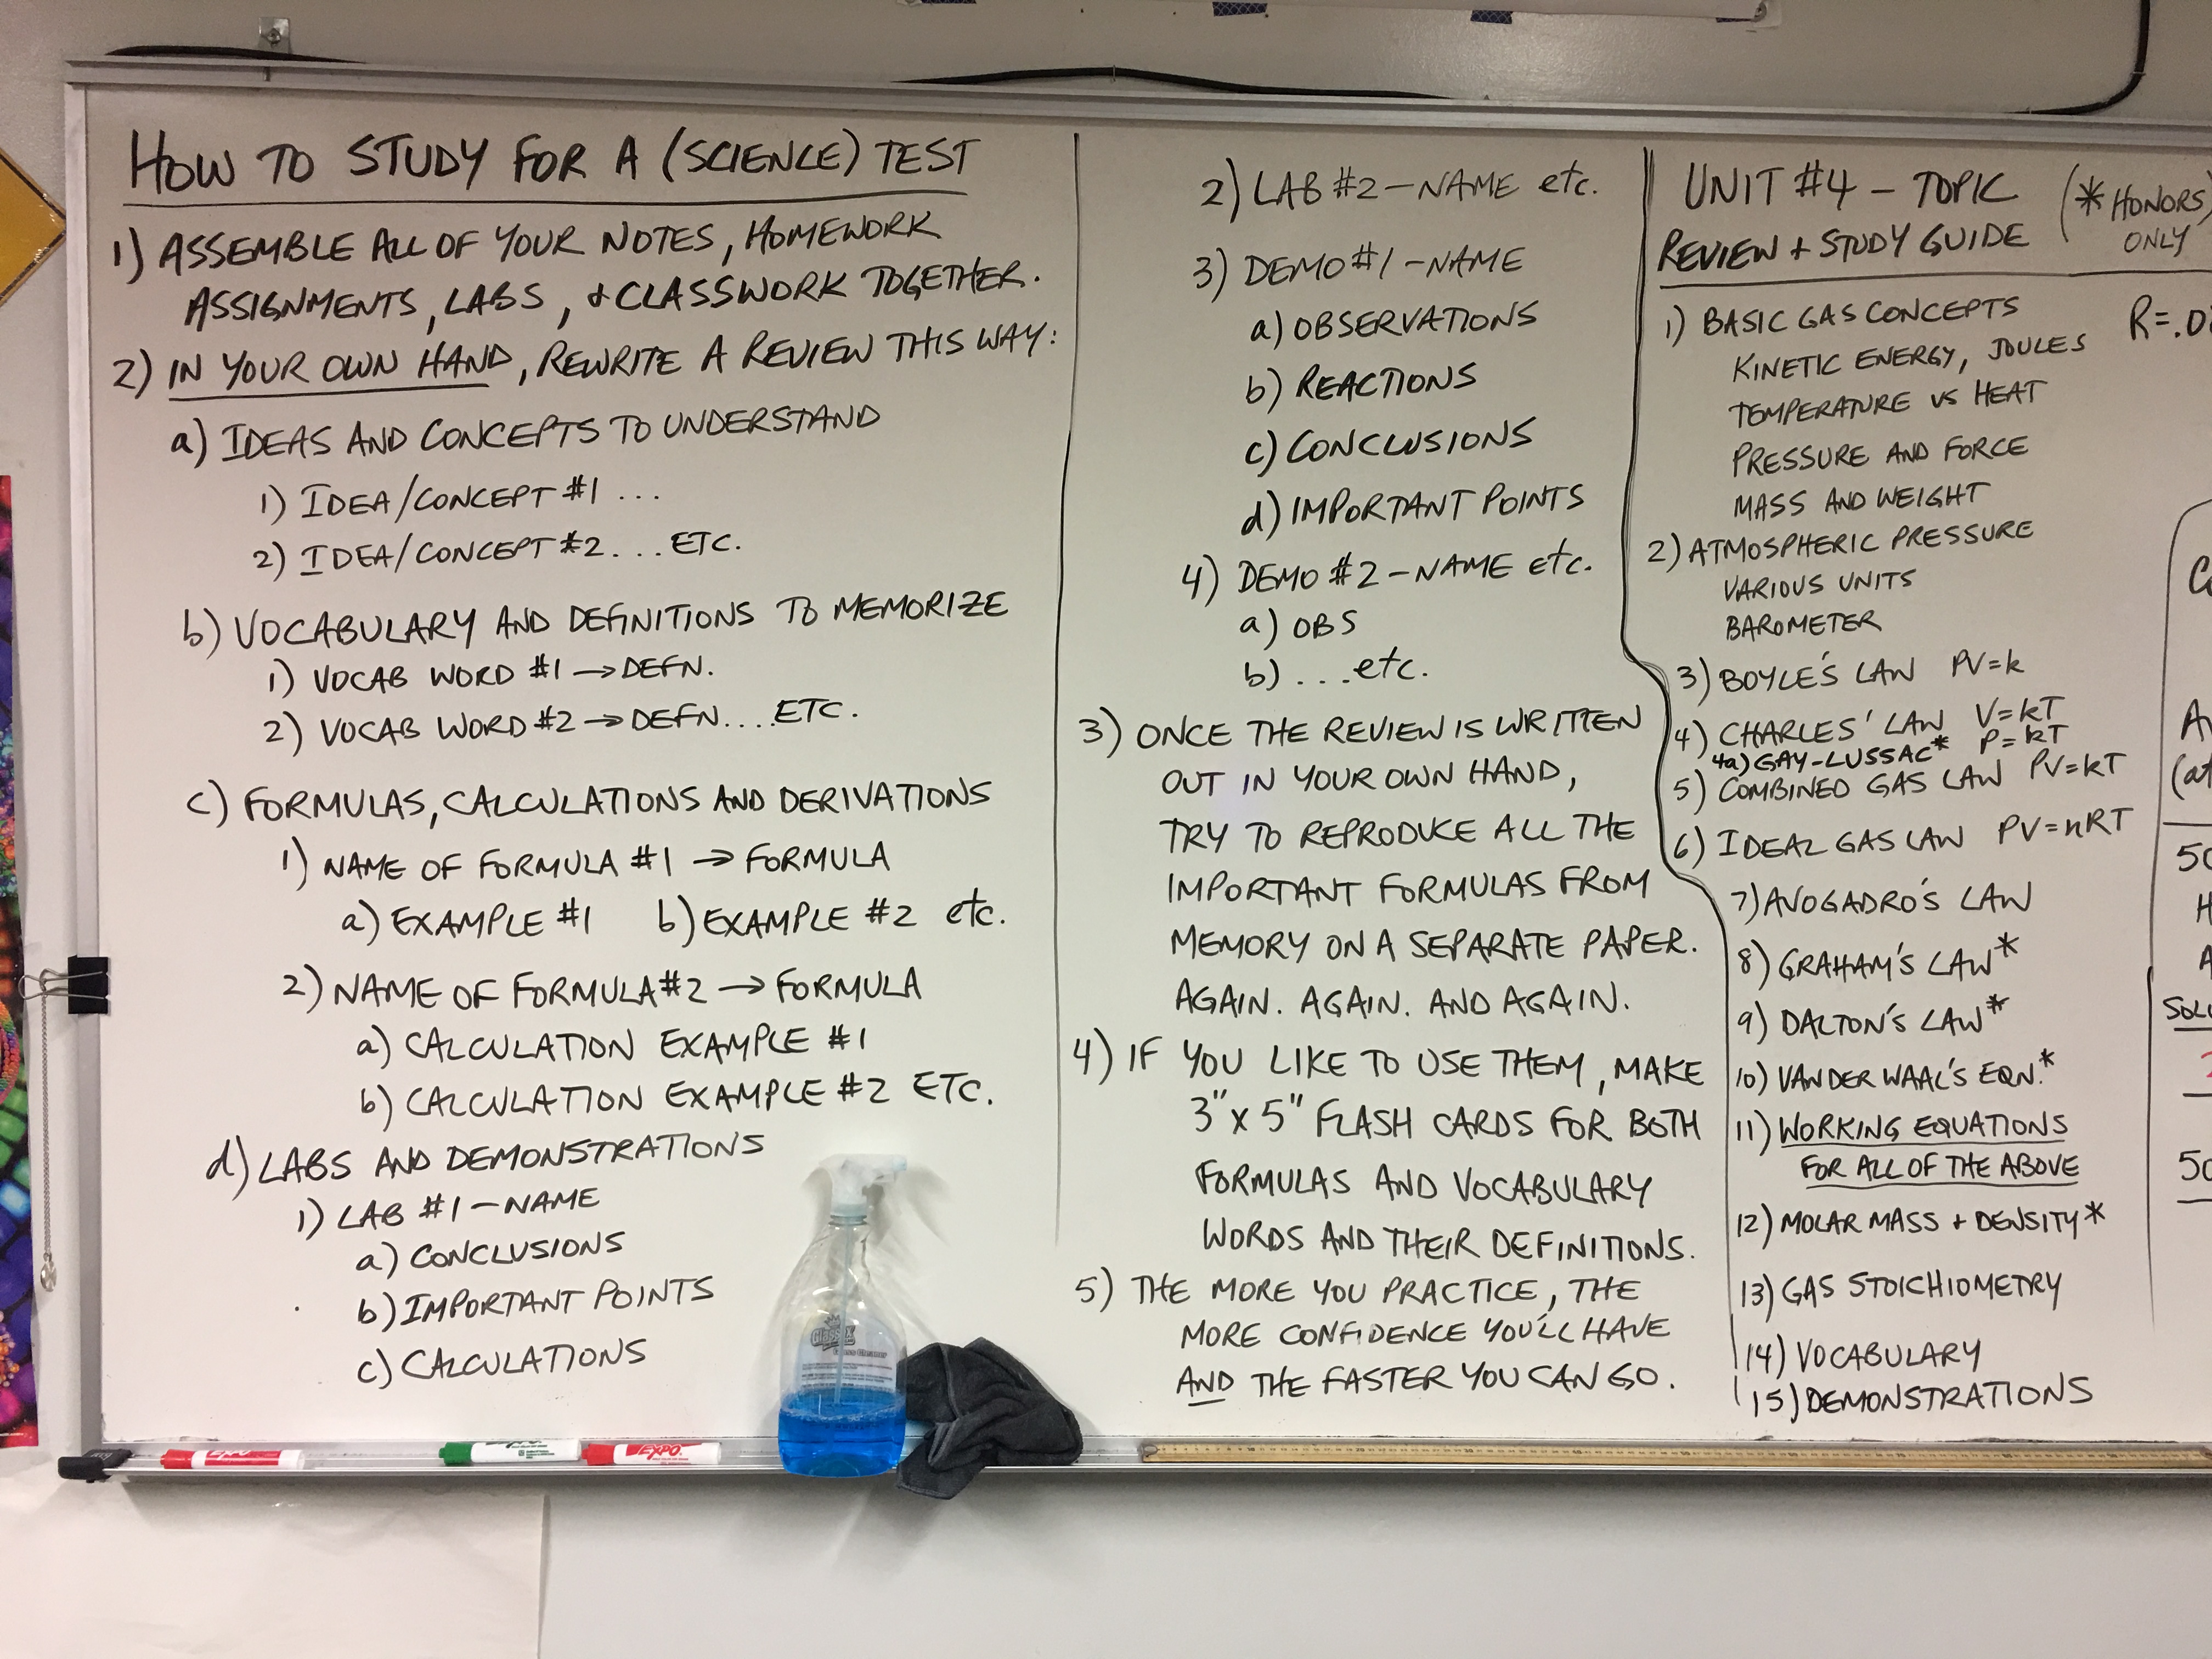 HOW TO STUDY FOR A (SCIENCE) TEST
1) ASSEMBLE ALL OF YOUR NOTES, HOMEWORK
ASSIGNMENTS, LABS, + CLASSWORK TOGETHER.
2) IN YOUR OWN HAND, REWRITE A REVIEW THIS WAY:
a) IDEAS AND CONCEPTS TO UNDERSTAND
1) IDEA/CONCEPT #1 ...
2) IDEA/CONCEPT #2 ... ETC.
b) VOCABULARY AND DEFINITIONS TO MEMORIZE
1) VOCAB WORD #1 → DEFN.
2) VOCAB WORD #2 → DEFN.... ETC.
c) FORMULAS, CALCULATIONS AND DERIVATIONS
1) NAME OF FORMULA #1 → FORMULA
a) EXAMPLE #1 b) EXAMPLE #2 etc.
2) NAME OF FORMULA #2 → FORMULA
a) CALCULATION EXAMPLE #1
b) CALCULATION EXAMPLE #2 ETC.
d) LABS AND DEMONSTRATIONS
1) LAB #1 - NAME
a) CONCLUSIONS
b) IMPORTANT POINTS
c) CALCULATIONS
2) LAB #2 - NAME etc.
3) DEMO #1 - NAME
a) OBSERVATIONS
b) REACTIONS
c) CONCLUSIONS
d) IMPORTANT POINTS
4) DEMO #2 - NAME etc.
a) OBS
b) ... etc.
3) ONCE THE REVIEW IS WRITTEN
OUT IN YOUR OWN HAND,
TRY TO REPRODUCE ALL THE
IMPORTANT FORMULAS FROM
MEMORY ON A SEPARATE PAPER.
AGAIN. AGAIN. AND AGAIN.
4) IF YOU LIKE TO USE THEM, MAKE
3" x 5" FLASH CARDS FOR BOTH
FORMULAS AND VOCABULARY
WORDS AND THEIR DEFINITIONS.
5) THE MORE YOU PRACTICE, THE
MORE CONFIDENCE YOU'LL HAVE
AND THE FASTER YOU CAN GO.
UNIT #4 - TOPIC
REVIEW + STUDY GUIDE
(* HONORS
ONLY
1) BASIC GAS CONCEPTS
KINETIC ENERGY, JOULES
TEMPERATURE vs HEAT
PRESSURE AND FORCE
MASS AND WEIGHT
2) ATMOSPHERIC PRESSURE
VARIOUS UNITS
BAROMETER
3) BOYLE'S LAW PV=k
4) CHARLES' LAW V=kT
4a) GAY-LUSSAC* P=kT
5) COMBINED GAS LAW PV=kT
6) IDEAL GAS LAW PV=nRT
7) AVOGADRO'S LAW
8) GRAHAM'S LAW*
9) DALTON'S LAW*
10) VAN DER WAAL'S EQN.*
11) WORKING EQUATIONS
FOR ALL OF THE ABOVE
12) MOLAR MASS + DENSITY*
13) GAS STOICHIOMETRY
14) VOCABULARY
15) DEMONSTRATIONS
R=.0
50
50
EXPO
EXPO